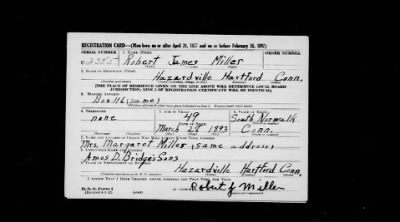 REGISTRATION CARD—(Men born on or after April 28, 1877 and on or before February 16, 1897)
SERIAL NUMBER 1. NAME (Print) ORDER NUMBER
Robert James Miller
2. PLACE OF RESIDENCE (Print)
Hazardville Hartford Conn.
[THE PLACE OF RESIDENCE GIVEN ON THE LINE ABOVE WILL DETERMINE LOCAL BOARD
JURISDICTION; LINE 2 OF REGISTRATION CERTIFICATE WILL BE IDENTICAL]
3. MAILING ADDRESS
Box 116 (same)
4. TELEPHONE 5. AGE IN YEARS 6. PLACE OF BIRTH
none 49 South Norwalk
DATE OF BIRTH
March 28 1893 Conn.
7. NAME AND ADDRESS OF PERSON WHO WILL ALWAYS KNOW YOUR ADDRESS
Mrs. Margaret Miller (same address)
8. EMPLOYER'S NAME AND ADDRESS
Amos D. Bridges Sons
9. PLACE OF EMPLOYMENT OR BUSINESS
Hazardville Hartford Conn.
I AFFIRM THAT I HAVE VERIFIED ABOVE ANSWERS AND THAT THEY ARE TRUE.
D. S. S. Form 1
Robert J Miller